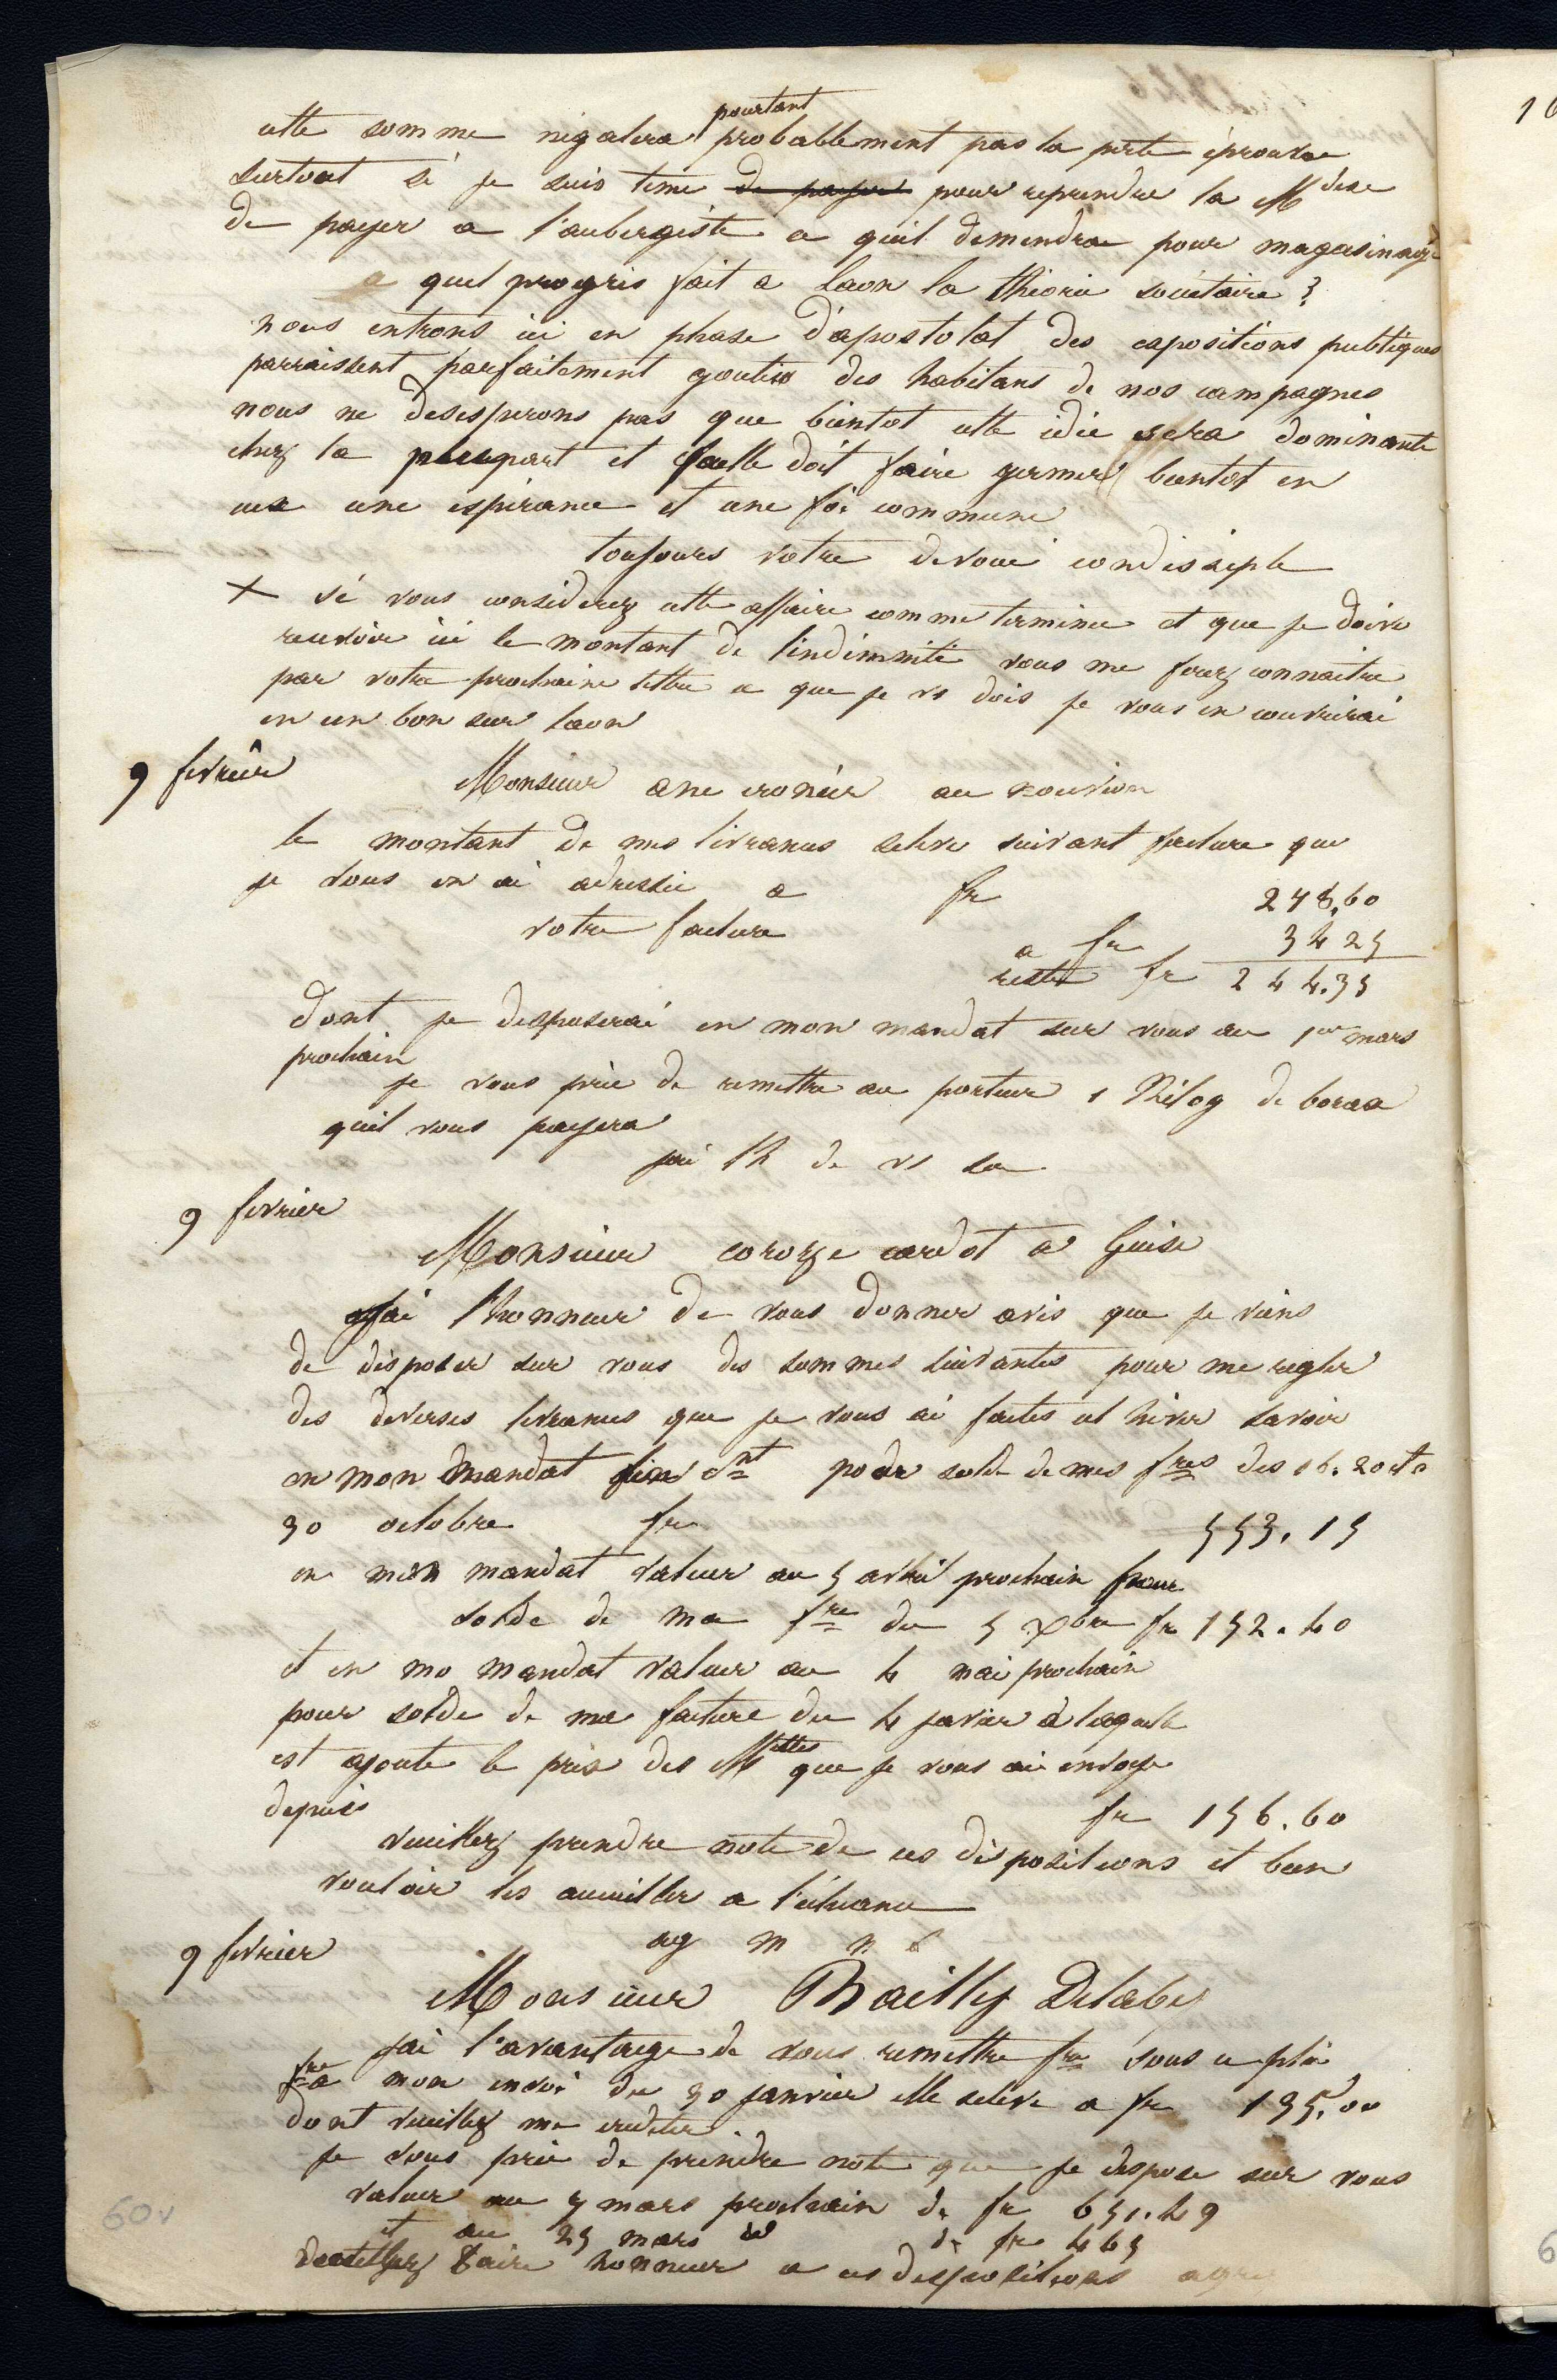 pourtant
cette somme négalera probablement pas la perte éprouvée
surtout si je suis tenu de payer pour reprendre la Mdise
de payer a l'aubergiste ce quil demendra pour magasinage
quel progrès fait a Laon la théorie sociétaire ?
nous entrons ici en phase d'apostolat des expositions publiques
parraissent parfaitement goutées des habitans de nos campagnes
nous ne desesperons pas que bientot cette idée sera dominante
chez la plupart et quelle doit faire germer bientot en
eux une espérance et une foi commune
toujours votre dévoué condisciple
+ si vous considerez cette affaire comme terminée et que je doive
recevoir ici le montant de lindemnité vous me ferez connaitre
par votre prochaine lettre ce que je vs dois je vous en couvrirai
en un bon sur Laon
9 fevrier
Monsieur au nouvion
le montant de mes livrances selève suivant facture que
je vous en ai adressée a fr 278,60
votre facture a fr 34 25
reste fr 244.35
dont je disposerai en mon mandat sur vous au 1er mars
prochain
je vous prie de remettre au porteur 1 Kilog de borax
quil vous payera
jai lh de vs sa
9 fevrier
Monsieur cardot a Guise
jai l'honneur de vous donner avis que je viens
de disposer sur vous des sommes suivantes pour me regler
des diverses livrances que je vous ai faites cet hiver savoir
en mon mandat fin ct pour solde de mes fres des 16. 20 et
30 octobre fr 553.15
en mon mandat valeur au 5 avril prochain pour
solde de ma fre du 5 Xbre fr 152.40
et en mo mandat valeur au 4 mai prochain
pour solde de ma facture du 4 javier à laquelle
est ajouté le prix des Mlles que je vous ai envoyé
depuis fr 156.60
veuillez prendre note de ces dispositions et bien
vouloir les accueiller a l'échéance
ag m n
9 fevrier
Monsieur Bailly Delabey
jai l'avantage de vous remettre fre sous ce pli
fre a mon envoi du 30 janvier elle selève a fr 195,00
dont veuillez me créditer
je vous prie de prendre note que je dispose sur vous
valeur au 5 mars prochain de fr 651.49
et au 25 mars id de fr 465
veuillez faire honneur a ces dispositions
60v